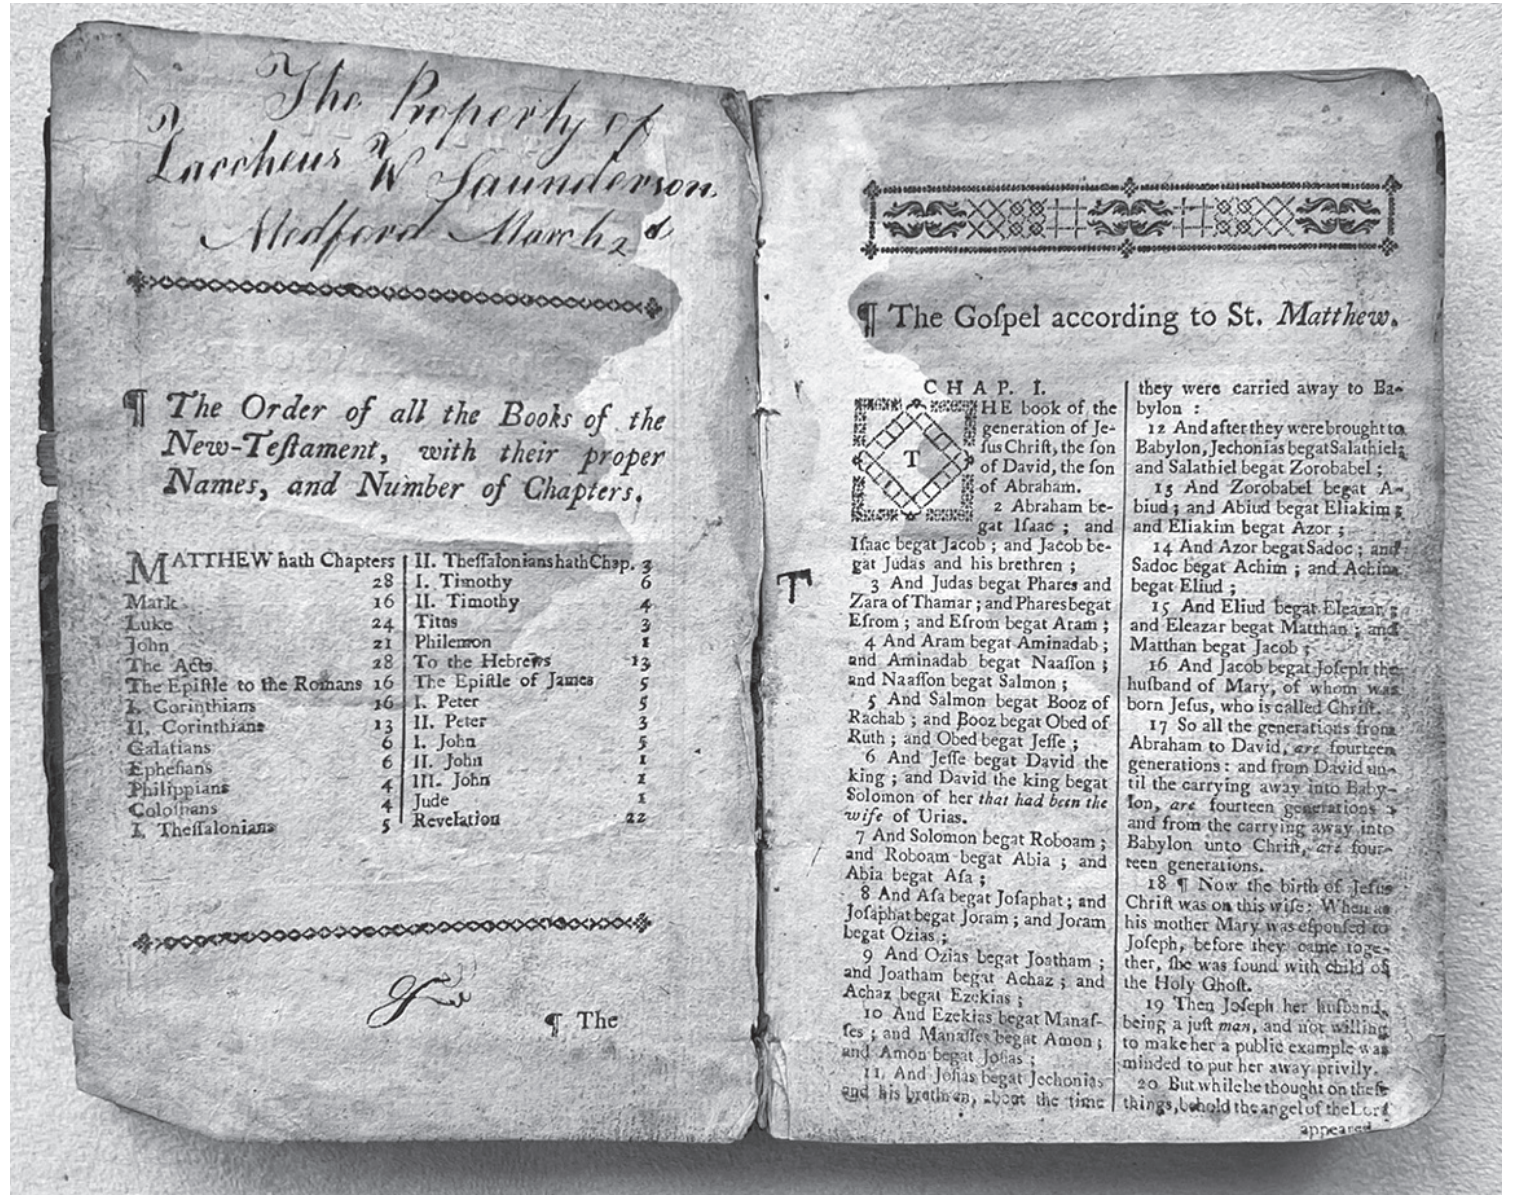 The Property of
Zaccheus W Saunderson.
Medford March 2d
¶ The Order of all the Books of the
New-Teſtament, with their proper
Names, and Number of Chapters.
MATTHEW hath Chapters
28
Mark 16
Luke 24
John 21
The Acts 28
The Epiſtle to the Romans 16
I. Corinthians 16
II. Corinthians 13
Galatians 6
Epheſians 6
Philippians 4
Coloſſians 4
I. Theſſalonians 5
II. Theſſalonians hath Chap. 3
I. Timothy 6
II. Timothy 4
Titus 3
Philemon 1
To the Hebrews 13
The Epiſtle of James 5
I. Peter 5
II. Peter 3
I. John 5
II. John 1
III. John 1
Jude 1
Revelation 22
¶ The
T
¶ The Goſpel according to St. Matthew.
CHAP. I.
THE book of the
generation of Je-
ſus Chriſt, the ſon
of David, the ſon
of Abraham.
2 Abraham be-
gat Iſaac ; and
Iſaac begat Jacob ; and Jacob be-
gat Judas and his brethren ;
3 And Judas begat Phares and
Zara of Thamar ; and Phares begat
Eſrom ; and Eſrom begat Aram ;
4 And Aram begat Aminadab ;
and Aminadab begat Naaſſon ;
and Naaſſon begat Salmon ;
5 And Salmon begat Booz of
Rachab ; and Booz begat Obed of
Ruth ; and Obed begat Jeſſe ;
6 And Jeſſe begat David the
king ; and David the king begat
Solomon of her that had been the
wife of Urias.
7 And Solomon begat Roboam ;
and Roboam begat Abia ; and
Abia begat Aſa ;
8 And Aſa begat Joſaphat ; and
Joſaphat begat Joram ; and Joram
begat Ozias ;
9 And Ozias begat Joatham ;
and Joatham begat Achaz ; and
Achaz begat Ezekias ;
10 And Ezekias begat Manaſ-
ſes ; and Manaſſes begat Amon ;
and Amon begat Joſias ;
11. And Joſias begat Jechonias
and his brethren, about the time
they were carried away to Ba-
bylon :
12 And after they were brought to
Babylon, Jechonias begat Salathiel ;
and Salathiel begat Zorobabel ;
13 And Zorobabel begat A-
biud ; and Abiud begat Eliakim ;
and Eliakim begat Azor ;
14 And Azor begat Sadoc ; and
Sadoc begat Achim ; and Achim
begat Eliud ;
15 And Eliud begat Eleazar ;
and Eleazar begat Matthan ; and
Matthan begat Jacob ;
16 And Jacob begat Joſeph the
huſband of Mary, of whom was
born Jeſus, who is called Chriſt.
17 So all the generations from
Abraham to David, are fourteen
generations : and from David un-
til the carrying away into Baby-
lon, are fourteen generations ;
and from the carrying away into
Babylon unto Chriſt, are four-
teen generations.
18 ¶ Now the birth of Jeſus
Chriſt was on this wiſe: When as
his mother Mary was eſpouſed to
Joſeph, before they came toge-
ther, ſhe was found with child of
the Holy Ghoſt.
19 Then Joſeph her huſband,
being a juſt man, and not willing
to make her a public example was
minded to put her away privily.
20 But while he thought on theſe
things, behold the angel of the Lord
appeared